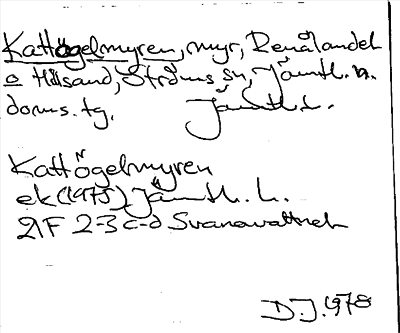 Kattögelmyren, myr, Renålandet
o Hillsand, Ströms sn, Jämtl. n.
doms. tg. Jämtl. l.
Kattögelmyren
ek (1975) Jämtl. l.
21F 2-3 c-d Svanavattnet
D.J. 1978